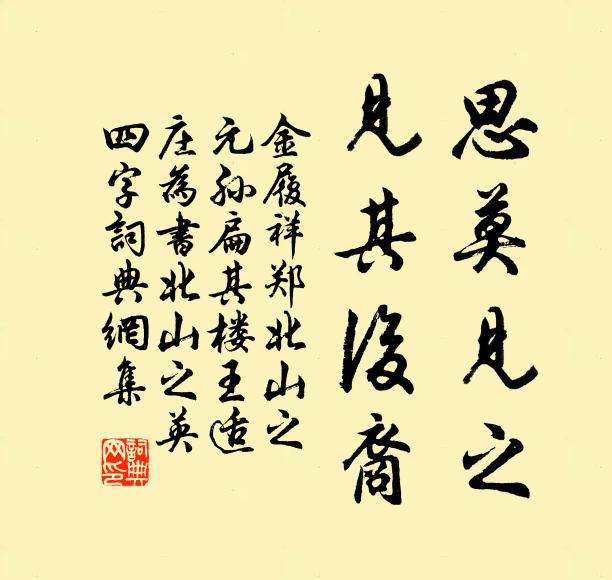 思莫見之
見其後裔
金履祥郑北山之
元孙扁其楼王适
庄為書北山之英
四字詞典網集
詞典网印